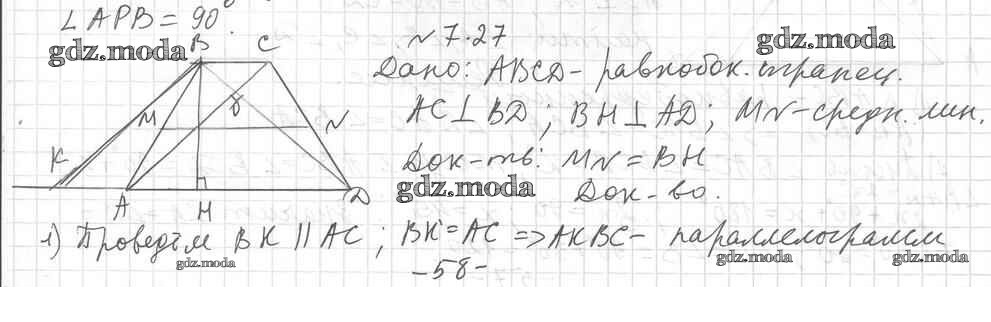 ∠ APB = 90°.
gdz.moda
gdz.moda
N 7.27
B C
Дано: ABCD - равнобок. трапец.
AC ⊥ BD; BH ⊥ AD; MN - средн. лин.
M N
Док-ть: MN = BH
K
gdz.moda
Док-во.
A H D
1) Проведём BK ∥ AC; BK = AC => AKBC - параллелограмм
gdz.moda
gdz.moda
gdz.moda
-58-